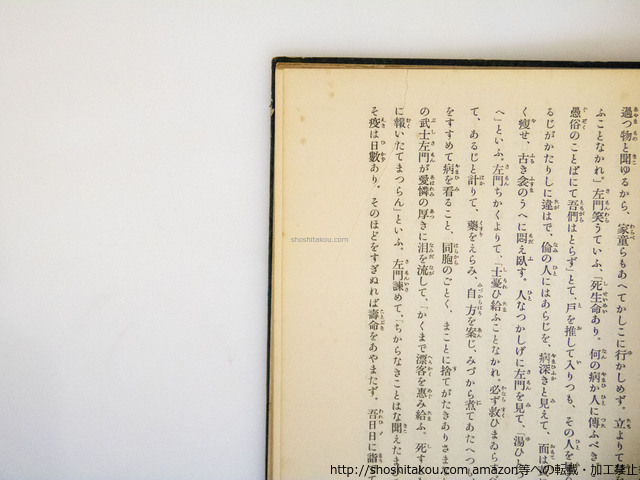 過つ物と聞ゆるから、家童らもあへてかしこに行かしめず。立よりて
ふことなかれ。」左門笑うていふ、「死生命あり。何の病か人に傳ふべき
愚俗のことばにて吾們はとらず」とて、戸を推して入りつも、その人を
るじがかたりしに違はで、倫の人にはあらじを、病深きと見えて、面は
く瘦せ、古き衾のうへに悶え臥す。人なつかしげに左門を見て、「湯ひ
へ」といふ。左門ちかくよりて、「士憂ひ給ふことなかれ。必ず救ひまゐらす
て、あるじと計りて、藥をえらみ、自方を案じ、みづから煮てあたへつ
をすすめて病を看ること、同胞のごとく、まことに捨てがたきありさま
の武士左門が愛憐の厚きに泪を流して、「かくまで漂客を惠み給ふ。死す
に報いたてまつらん」といふ。左門諫めて、「ちからなきことはな聞えたま
そ疫は日數あり。そのほどをすぎぬれば壽命をあやまたず。吾日日に詣
shoshitakou.com
http://shoshitakou.com amazon等への転載・加工禁止